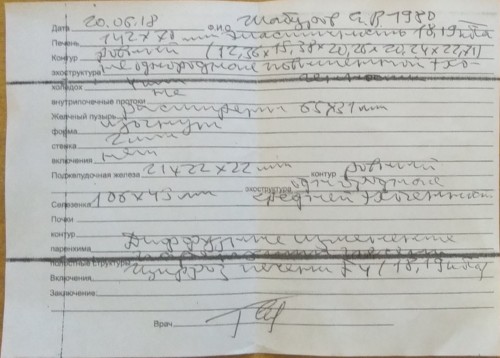 Дата 20.06.18 Ф.И.О. Шабуров С.В 1980
Печень 142х78 мм эластичность 18,19 кПа
Контур ровный (12,36х15,38х20,26х20,24х22,71)
эхоструктура неоднородная повышенной эхо-
генности
холедох 4 мм
внутрипеченочные протоки не расширены
Желчный пузырь 65х31 мм
форма изогнут
стенка 2 мм
включения нет
Поджелудочная железа 21х22х22 мм контур ровный
эхоструктура однородная
Селезенка 106х43 мм средней эхогенности
Почки
контур
паренхима Диффузные изменения
полостные структуры
Включения Цирроз печени F4 (18,19 кПа)
Заключение:
Врач